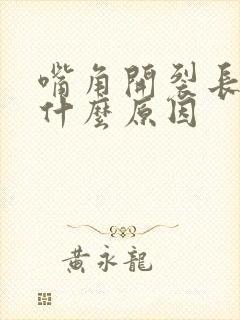 嘴角開裂長
什麼原因
黃永龍